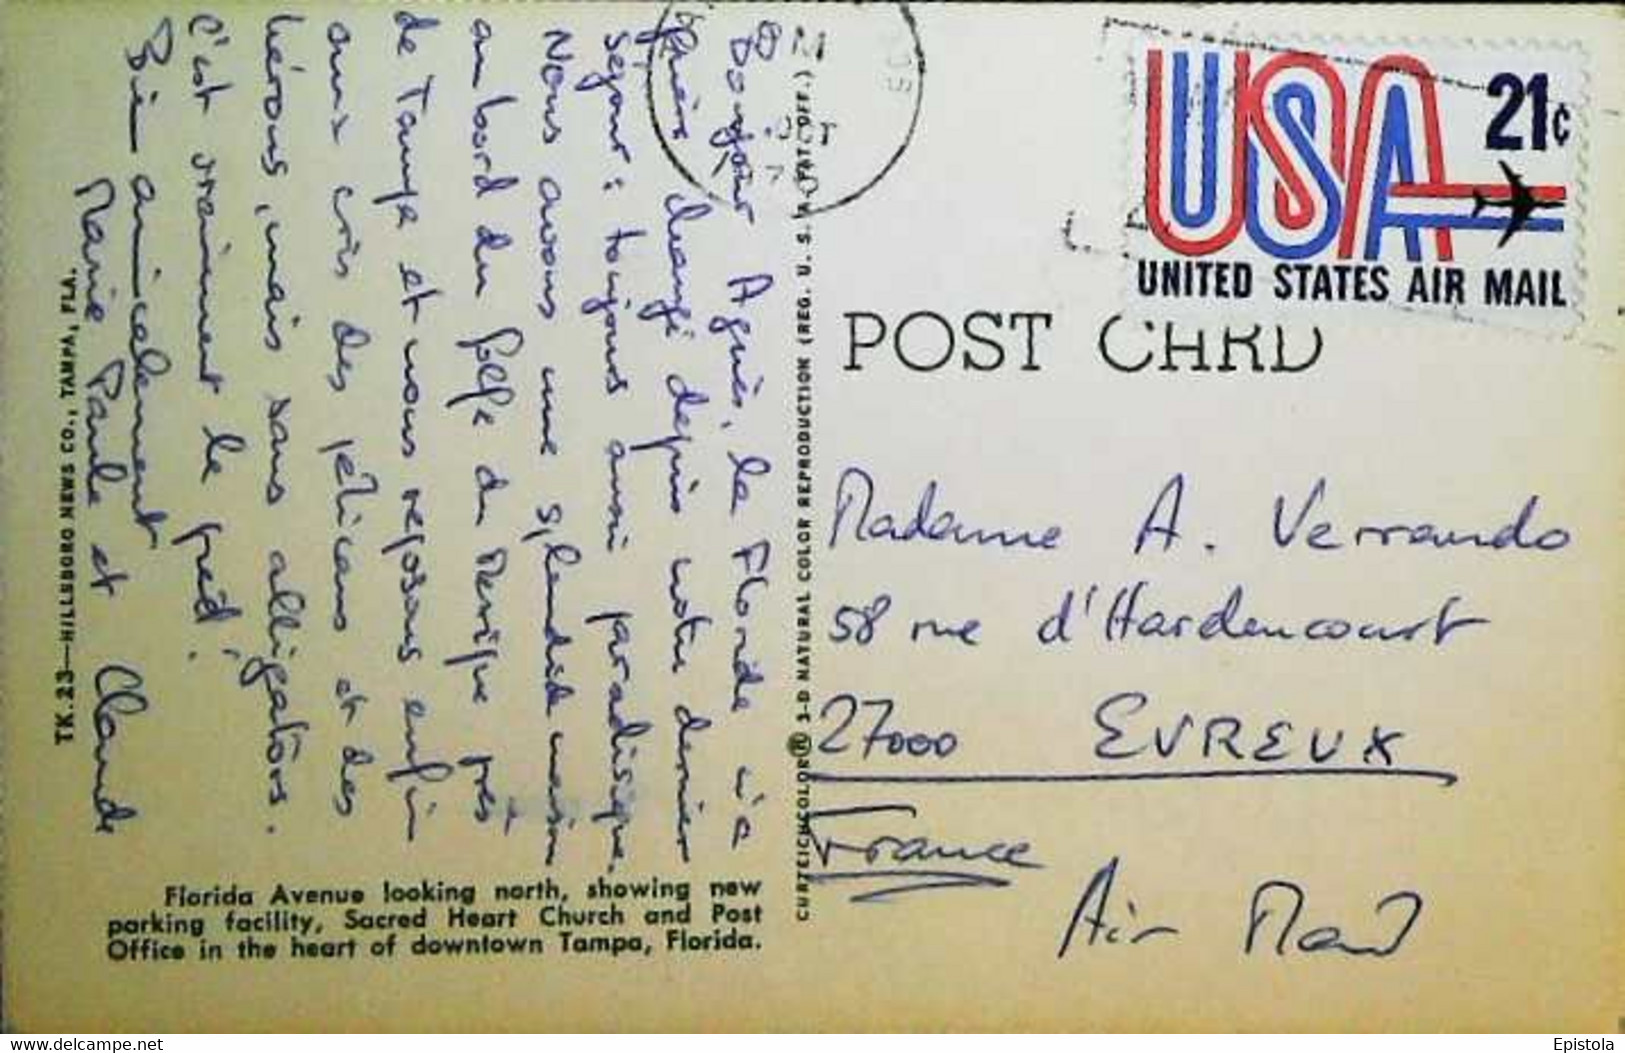 Bonjour Agnès, la Floride n'a
guère changé depuis notre dernier
séjour : toujours aussi paradisique.
Nous avons une splendide maison
au bord du golfe du Mexique près
de Tampa et nous reposons enfin
aux cris des pélicans et des
hérons, mais sans alligators.
C'est vraiment le pied !
Bien amicalement
Marie Paule et Claude
TK.23—HILLSBORO NEWS CO., TAMPA, FLA.
Florida Avenue looking north, showing new
parking facility, Sacred Heart Church and Post
Office in the heart of downtown Tampa, Florida.
CURTEICHCOLOR® 3-D NATURAL COLOR REPRODUCTION (REG. U. S. A. PAT. OFF.)
PM
OCT
USA 21c
UNITED STATES AIR MAIL
POST CARD
Madame A. Verrando
58 rue d'Hardencourt
27000 EVREUX
France
Air Mail
delcampe.net
Epistola